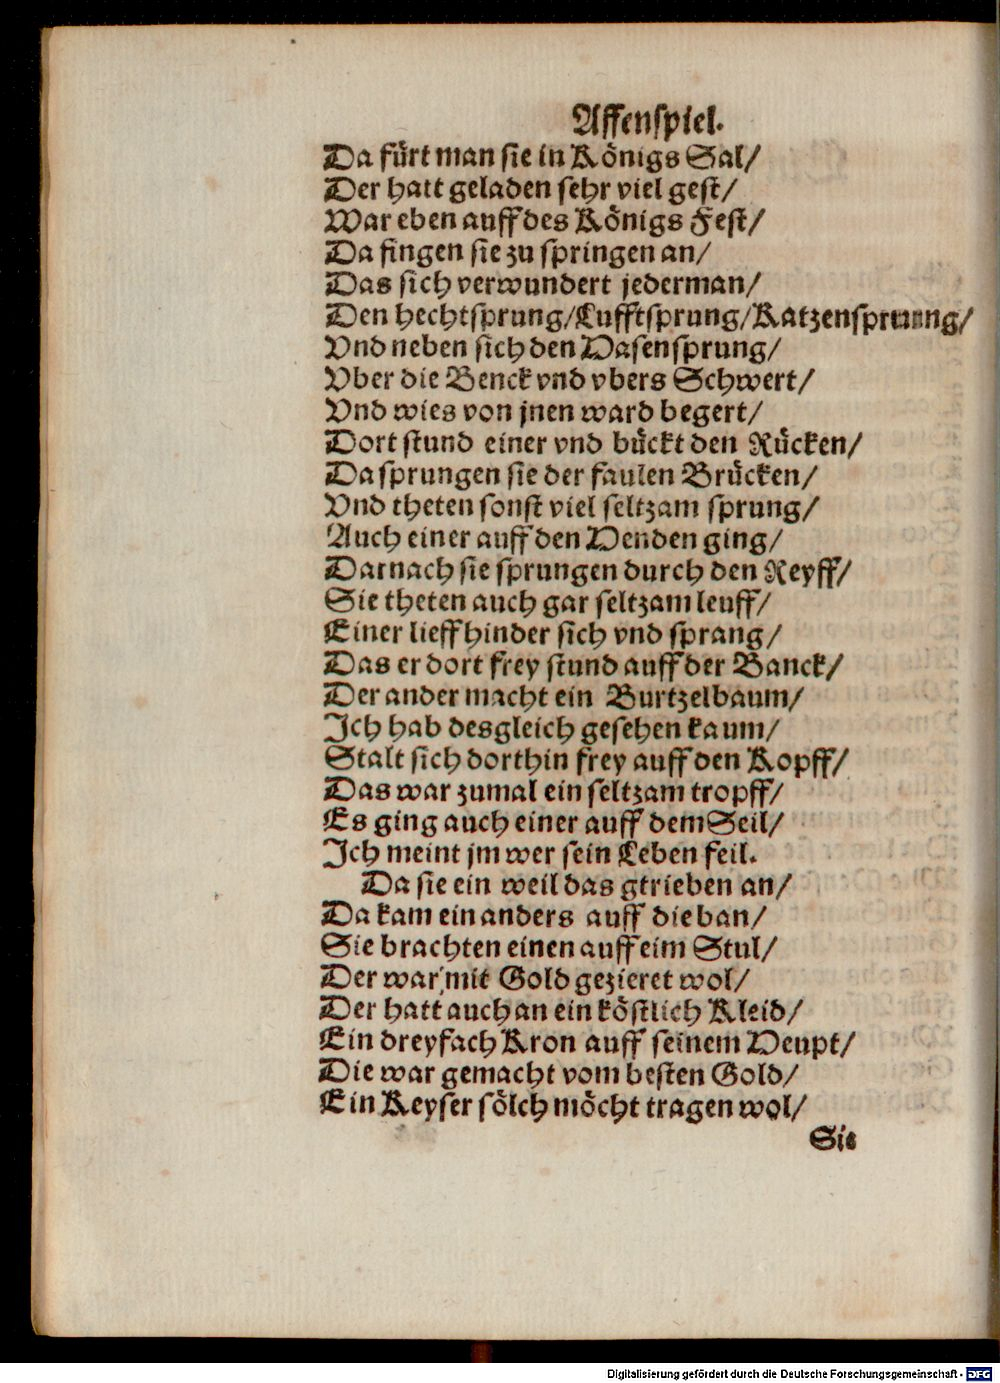 Affenspiel.
Da fürt man sie in Königs Sal/
Der hatt geladen sehr viel gest/
War eben auff des Königs Fest/
Da fingen sie zu springen an/
Das sich verwundert jederman/
Den hechtsprung/Lufftsprung/Katzensprung/
Vnd neben sich den Hasensprung/
Vber die Benck vnd vbers Schwert/
Vnd wies von jnen ward begert/
Dort stund einer vnd bückt den Rücken/
Da sprungen sie der faulen Brücken/
Vnd theten sonst viel seltzam sprung/
Auch einer auff den Henden ging/
Darnach sie sprungen durch den Reyff/
Sie theten auch gar seltzam leuff/
Einer lieff hinder sich vnd sprang/
Das er dort frey stund auff der Banck/
Der ander macht ein Burtzelbaum/
Ich hab desgleich gesehen kaum/
Stalt sich dorthin frey auff den Kopff/
Das war zumal ein seltzam tropff/
Es ging auch einer auff dem Seil/
Ich meint jm wer sein Leben feil.
Da sie ein weil das gtrieben an/
Da kam ein anders auff die ban/
Sie brachten einen auff eim Stul/
Der war mit Gold gezieret wol/
Der hatt auch an ein köstlich Kleid/
Ein dreyfach Kron auff seinem Heupt/
Die war gemacht vom besten Gold/
Ein Keyser sölch möcht tragen wol/
Sie
Digitalisierung gefördert durch die Deutsche Forschungsgemeinschaft - DFG